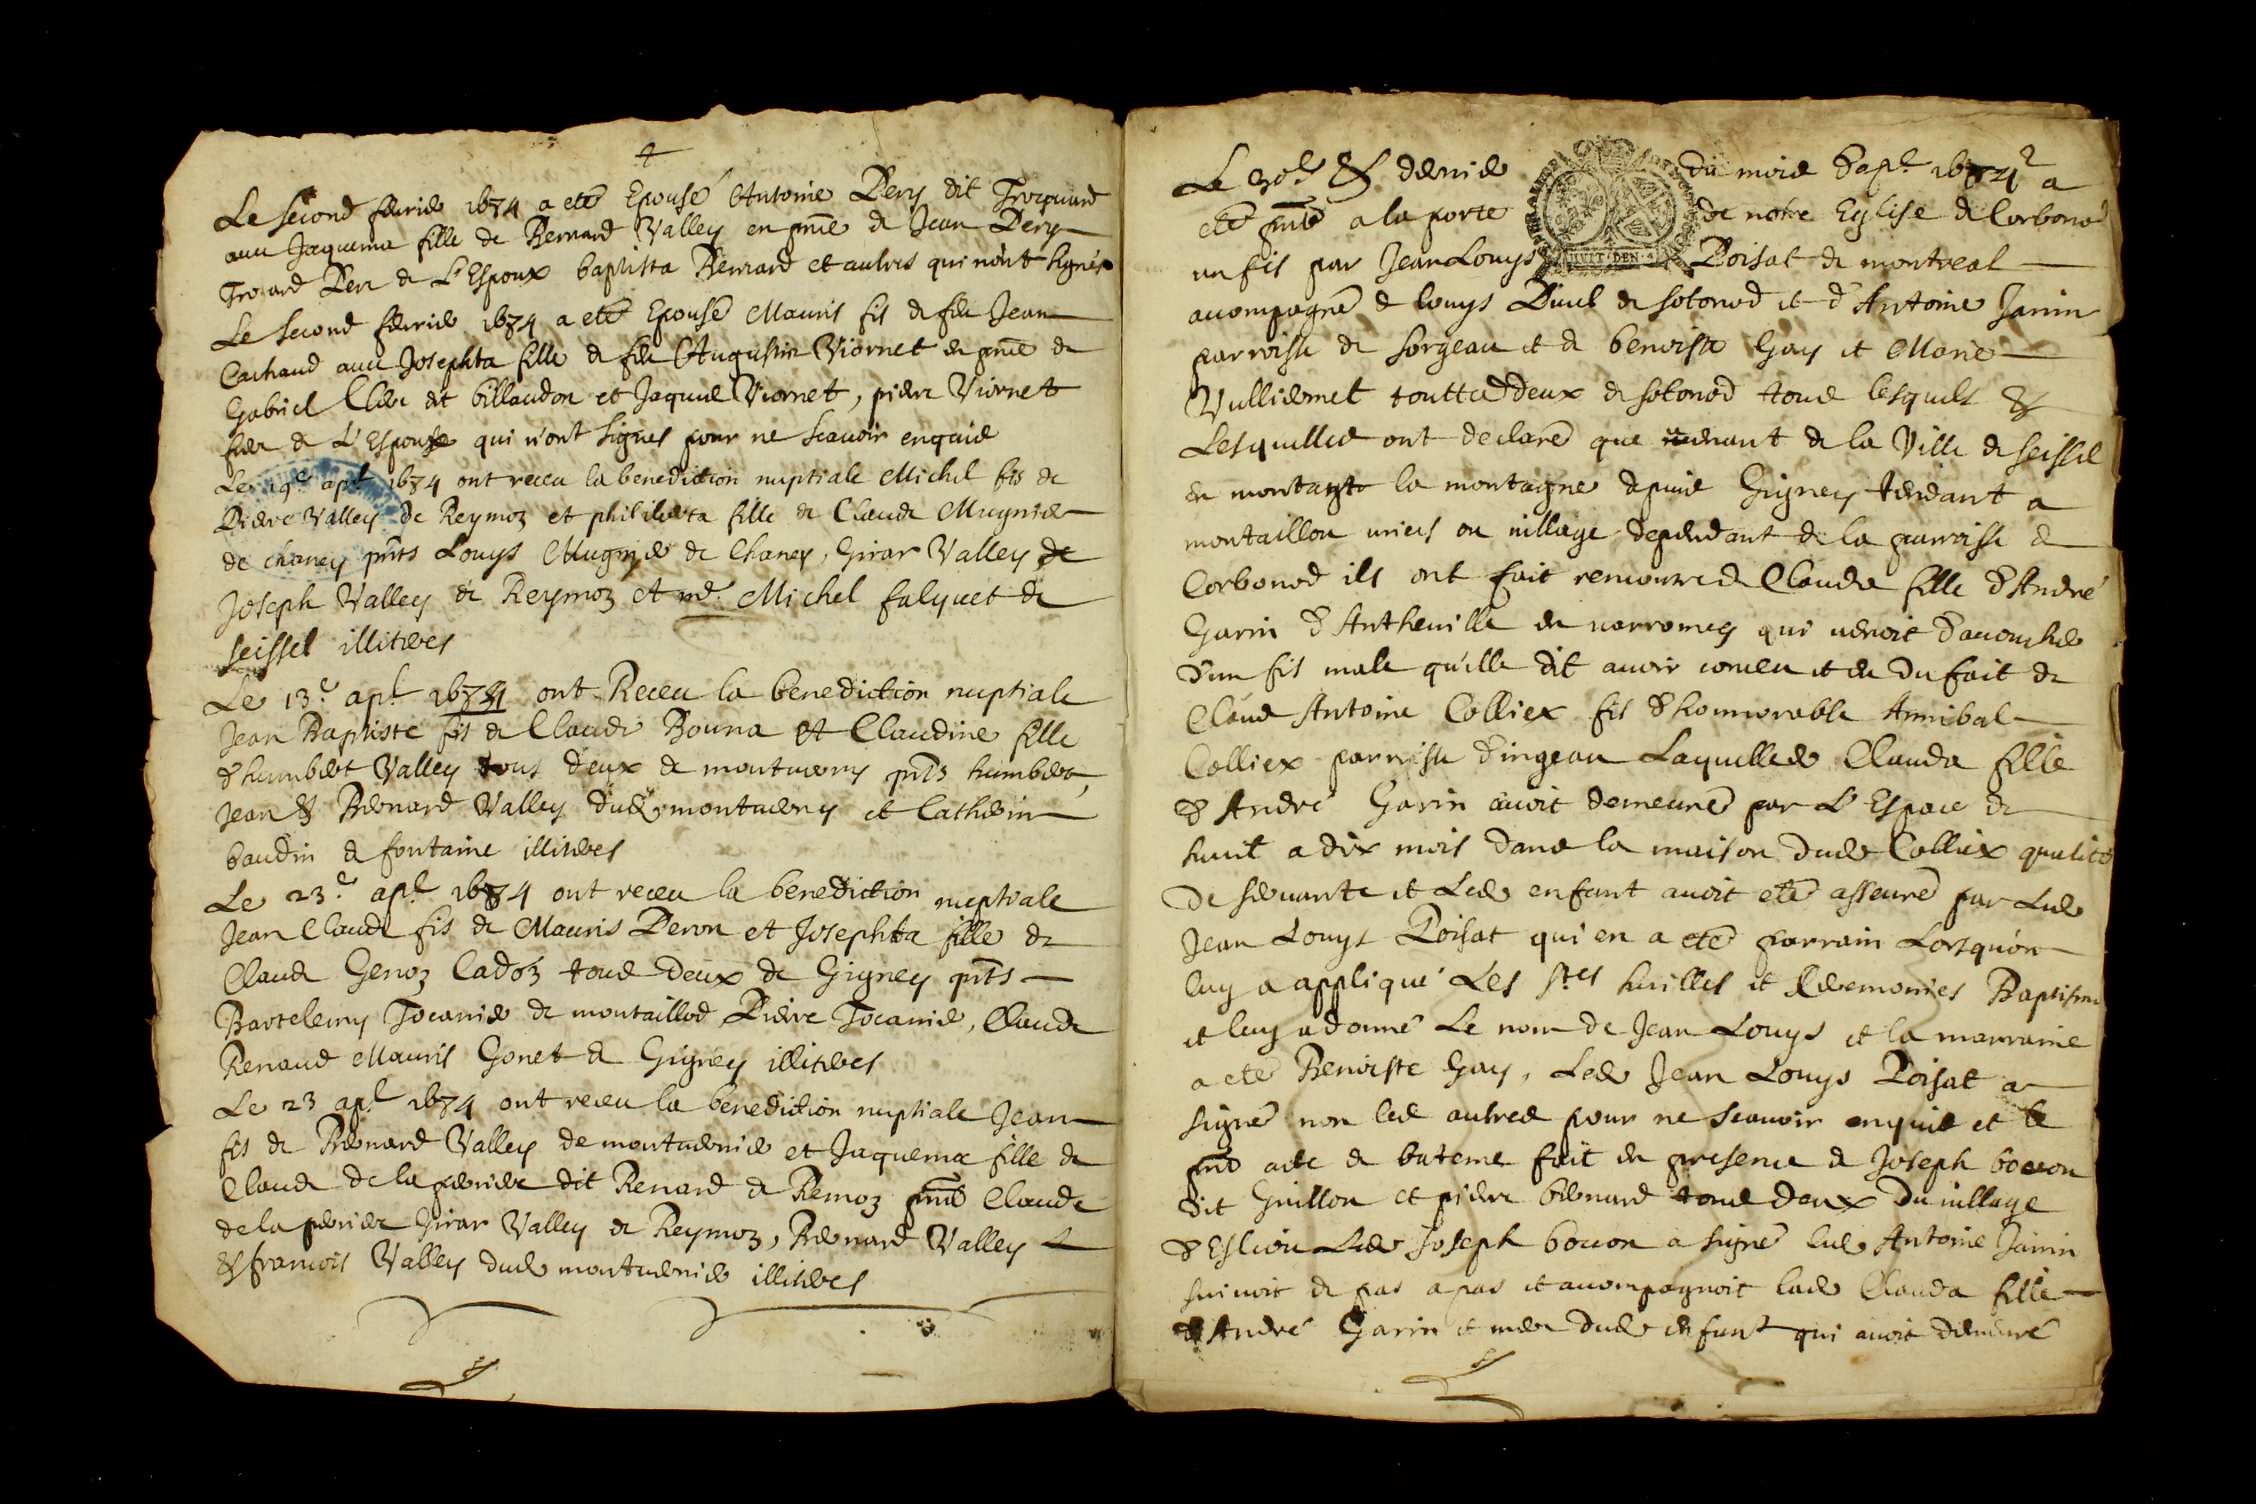 Le second feurier 1674 a eté Epousé Antoine Dery dit Trosquard
auec Jaquema fille de Bernard Valley en pnce de Jean Dery
Trosard Pere de L'Espoux baptista Bernard et autres qui n'ont signés
Le second feurier 1674 a eté Epousé Mauris fis de feu Jean
Cachaud auec Josephta fille de feu Augustin Viornet en pnce de
Gabriel Clerc dit billaudon et Jaques Viornet, pierre Viornet
frere de L'Espouse qui n'ont signes pour ne scauoir enquis
Le 19e apl 1674 ont receu la benediction nuptiale Michel fis de
Pierre Valley de Reymoz et philiberta fille de Claude Mugnier
de chaney pnts Louys Mugnier de Chaney, Girar Valley de
Joseph Valley de Reymoz et me Michel falquet de
seissel illiteres
Le 13e apl 1674 ont Receu la benediction nuptiale
Jean Baptiste fis de Claude Bouna et Claudine fille
d'humbert Valley tous deux de montuerny pnts humbert,
Jean & Bernard Valley dud montuerny et Catherin
baudin de fontaine illiteres
Le 23e apl 1674 ont receu la benediction nuptiale
Jean Claude fis de Mauris Peron et Josephta fille de
Claude Genoz Cadoz tous deux de Gigney pnts
Bartelemy Tocanier de montaillod, Pierre Tocanier, Claude
Renaud Mauris Gonet de Gigney illiteres
Le 23 apl 1674 ont receu la benediction nuptiale Jean
fis de Bernard Valley de montuernier et Jaquema fille de
Claude de la perriere dit Renard de Remoz pnts Claude
de la perriere Girar Valley de Reymoz, Bernard Valley
& francois Valley dud montuernier illiteres
Le 30e & dernier du mois d'apl 1674 a
eté pnté a la porte de notre Eglise de Corbonod
un fis par Jean Louys Poisat de montreal
acompagné de Louys de sotonod et d'Antoine Janin
parroisse de sorgeau et de benoiste Gay et Marie
Vulliermet touttes deux de sotonod tous lesquels &
Lesquelles ont declaré que uenant de la Ville de seissel
en montant la montagne depuis Gigney tendant a
montaillou uiers ou uillage dependant de la parroisse de
Corbonod ils ont fait rencontre de Claudα fille d'André
Garin d'Antheuille en uarromey qui uenoit d'acoucher
d'un fis male qu'elle dit auoir conceu et eu du fait de
Claud Antoine Colliex fis d'honnorable Annibal
Colliex parroisse d'ingeau Laquelle Clauda fille
d'André Garin auoit demeuré par L'Espace de
huit a dix mois dans la maison dud Colliex qualité
de seruante et Led enfant auoit eté asseuré par Led
Jean Louys Poisat qui en a eté parrain Lorsqu'on
luy a appliqué Les stes huilles et Ceremonies Baptisme
et luy a donné Le nom de Jean Louys et la marraine
a eté Benoiste Gay, Led Jean Louys Poisat a
signé non les autres pour ne scauoir enquis et le
pnt acte de bateme fait en presence de Joseph bocon
dit Guillon et pierre bernard tous deux du uillage
d'Eslioú Led Joseph bocon a signé led Antoine Janin
suiuoit de pas a pas et acompagnoit lad Clauda fille
d'André Garin et mere dud enfant qui auoit demeuré
HUIT DEN